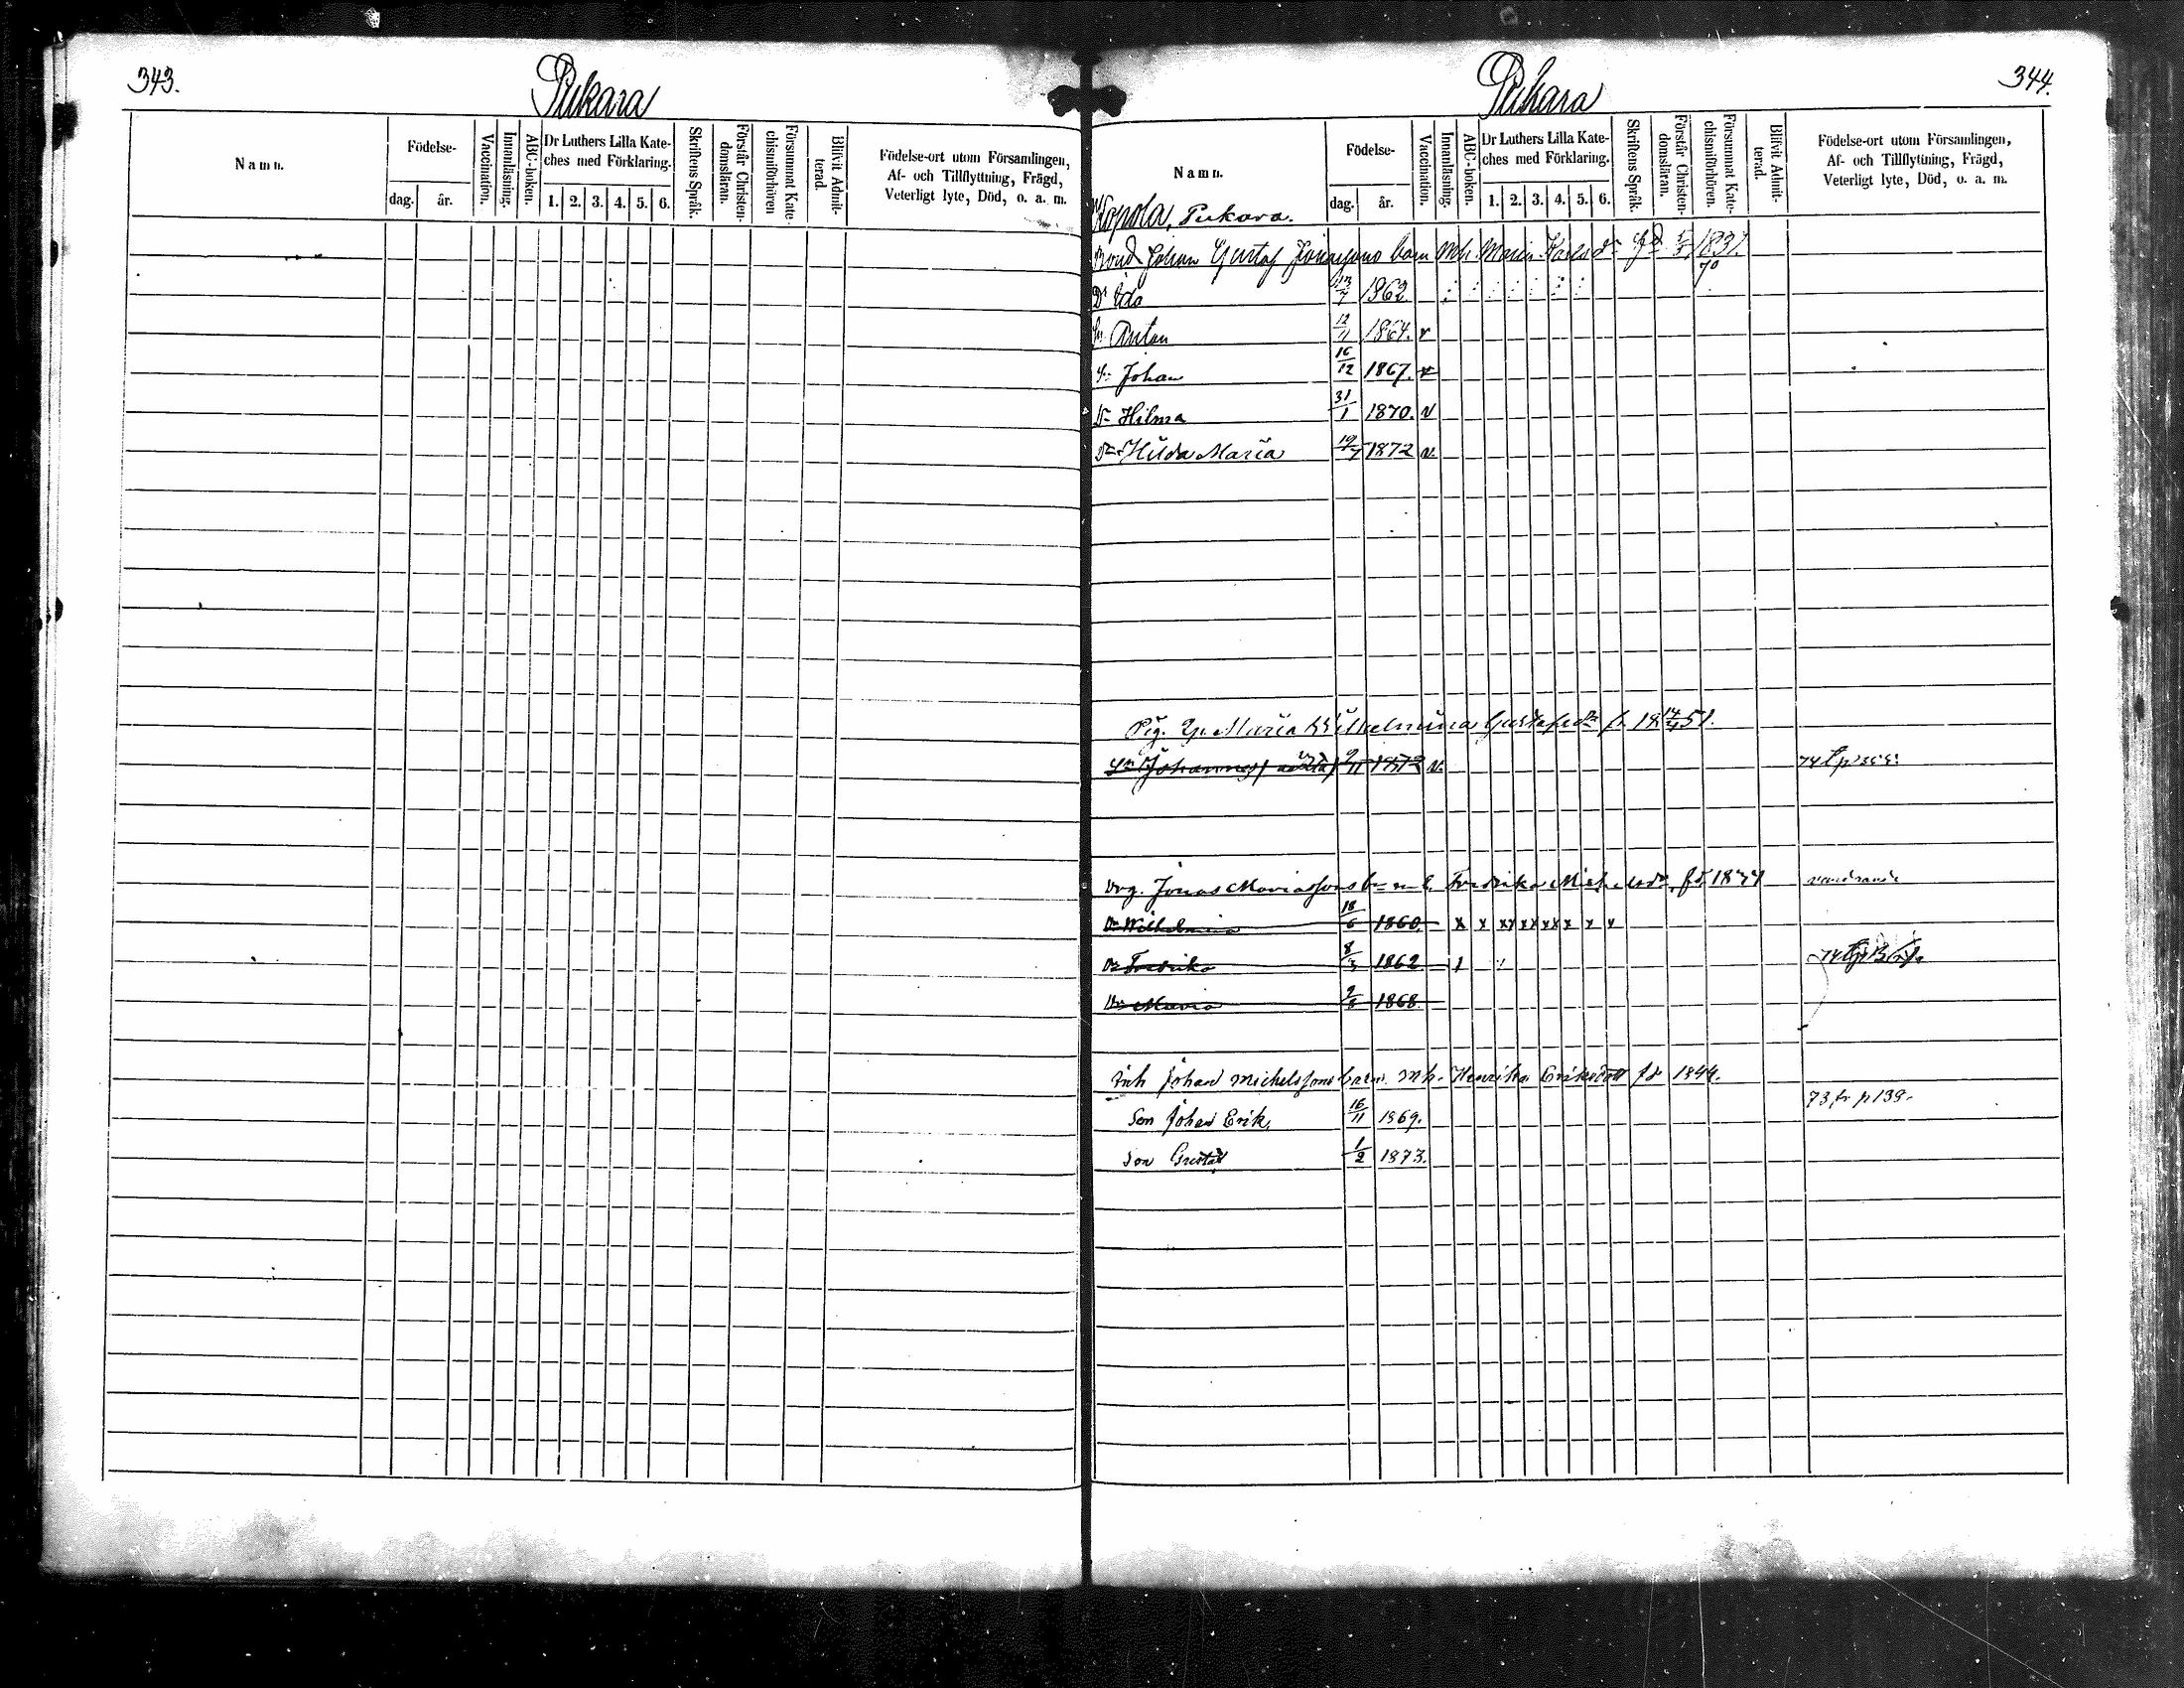 343.
Pukara
Namn.
Födelse-
dag.
år.
Vaccination.
Innanläsning.
ABC-boken.
Dr Luthers Lilla Kate-
ches med Förklaring.
1. 2. 3. 4. 5. 6.
Skriftens Språk.
Förstår Christen-
domsläran.
Försummat Kate-
chismiförhören
Blifvit Admit-
terad.
Födelse-ort utom Församlingen,
Af- och Tillflyttning, Frägd,
Veterligt lyte, Död, o. a. m.
344.
Pukara
Namn.
Födelse-
dag.
år.
Vaccination.
Innanläsning.
ABC-boken.
Dr Luthers Lilla Kate-
ches med Förklaring.
1. 2. 3. 4. 5. 6.
Skriftens Språk.
Förstår Christen-
domsläran.
Försummat Kate-
chismiförhören.
Blifvit Admit-
terad.
Födelse-ort utom Församlingen,
Af- och Tillflyttning, Frägd,
Veterligt lyte, Död, o. a. m.
Pukara.
Bond Johan Gustaf barn Mh. Maria Karlsdr 1831.
70
Dr Ida 1862
Sn Anton 12/11 1864. v
Sn Johan 16/12 1867. v
Dr Hilma 31/1 1870. v
Dr Hilda Maria 19/7 1872 v.
Pig. Maria Wilhelmina Gustafsdr f. 18 14/4 51.
Sn Johannes 9/11 1872 v.
Jonas Mariasson Fredrika Michelsdr fd.
Dr Wilhelmina 18/6 1860 x x xx xx xx x x x
Dr Fredrika 8/3 1862
Dr Maria 9/8 1868
Inh Johan Michelssons barn. Mh. Henrika Eriksdott fd 1844.
73 fr p 139.
Son Johan Erik. 16/11 1869.
Son Gustaf 1/2 1873.